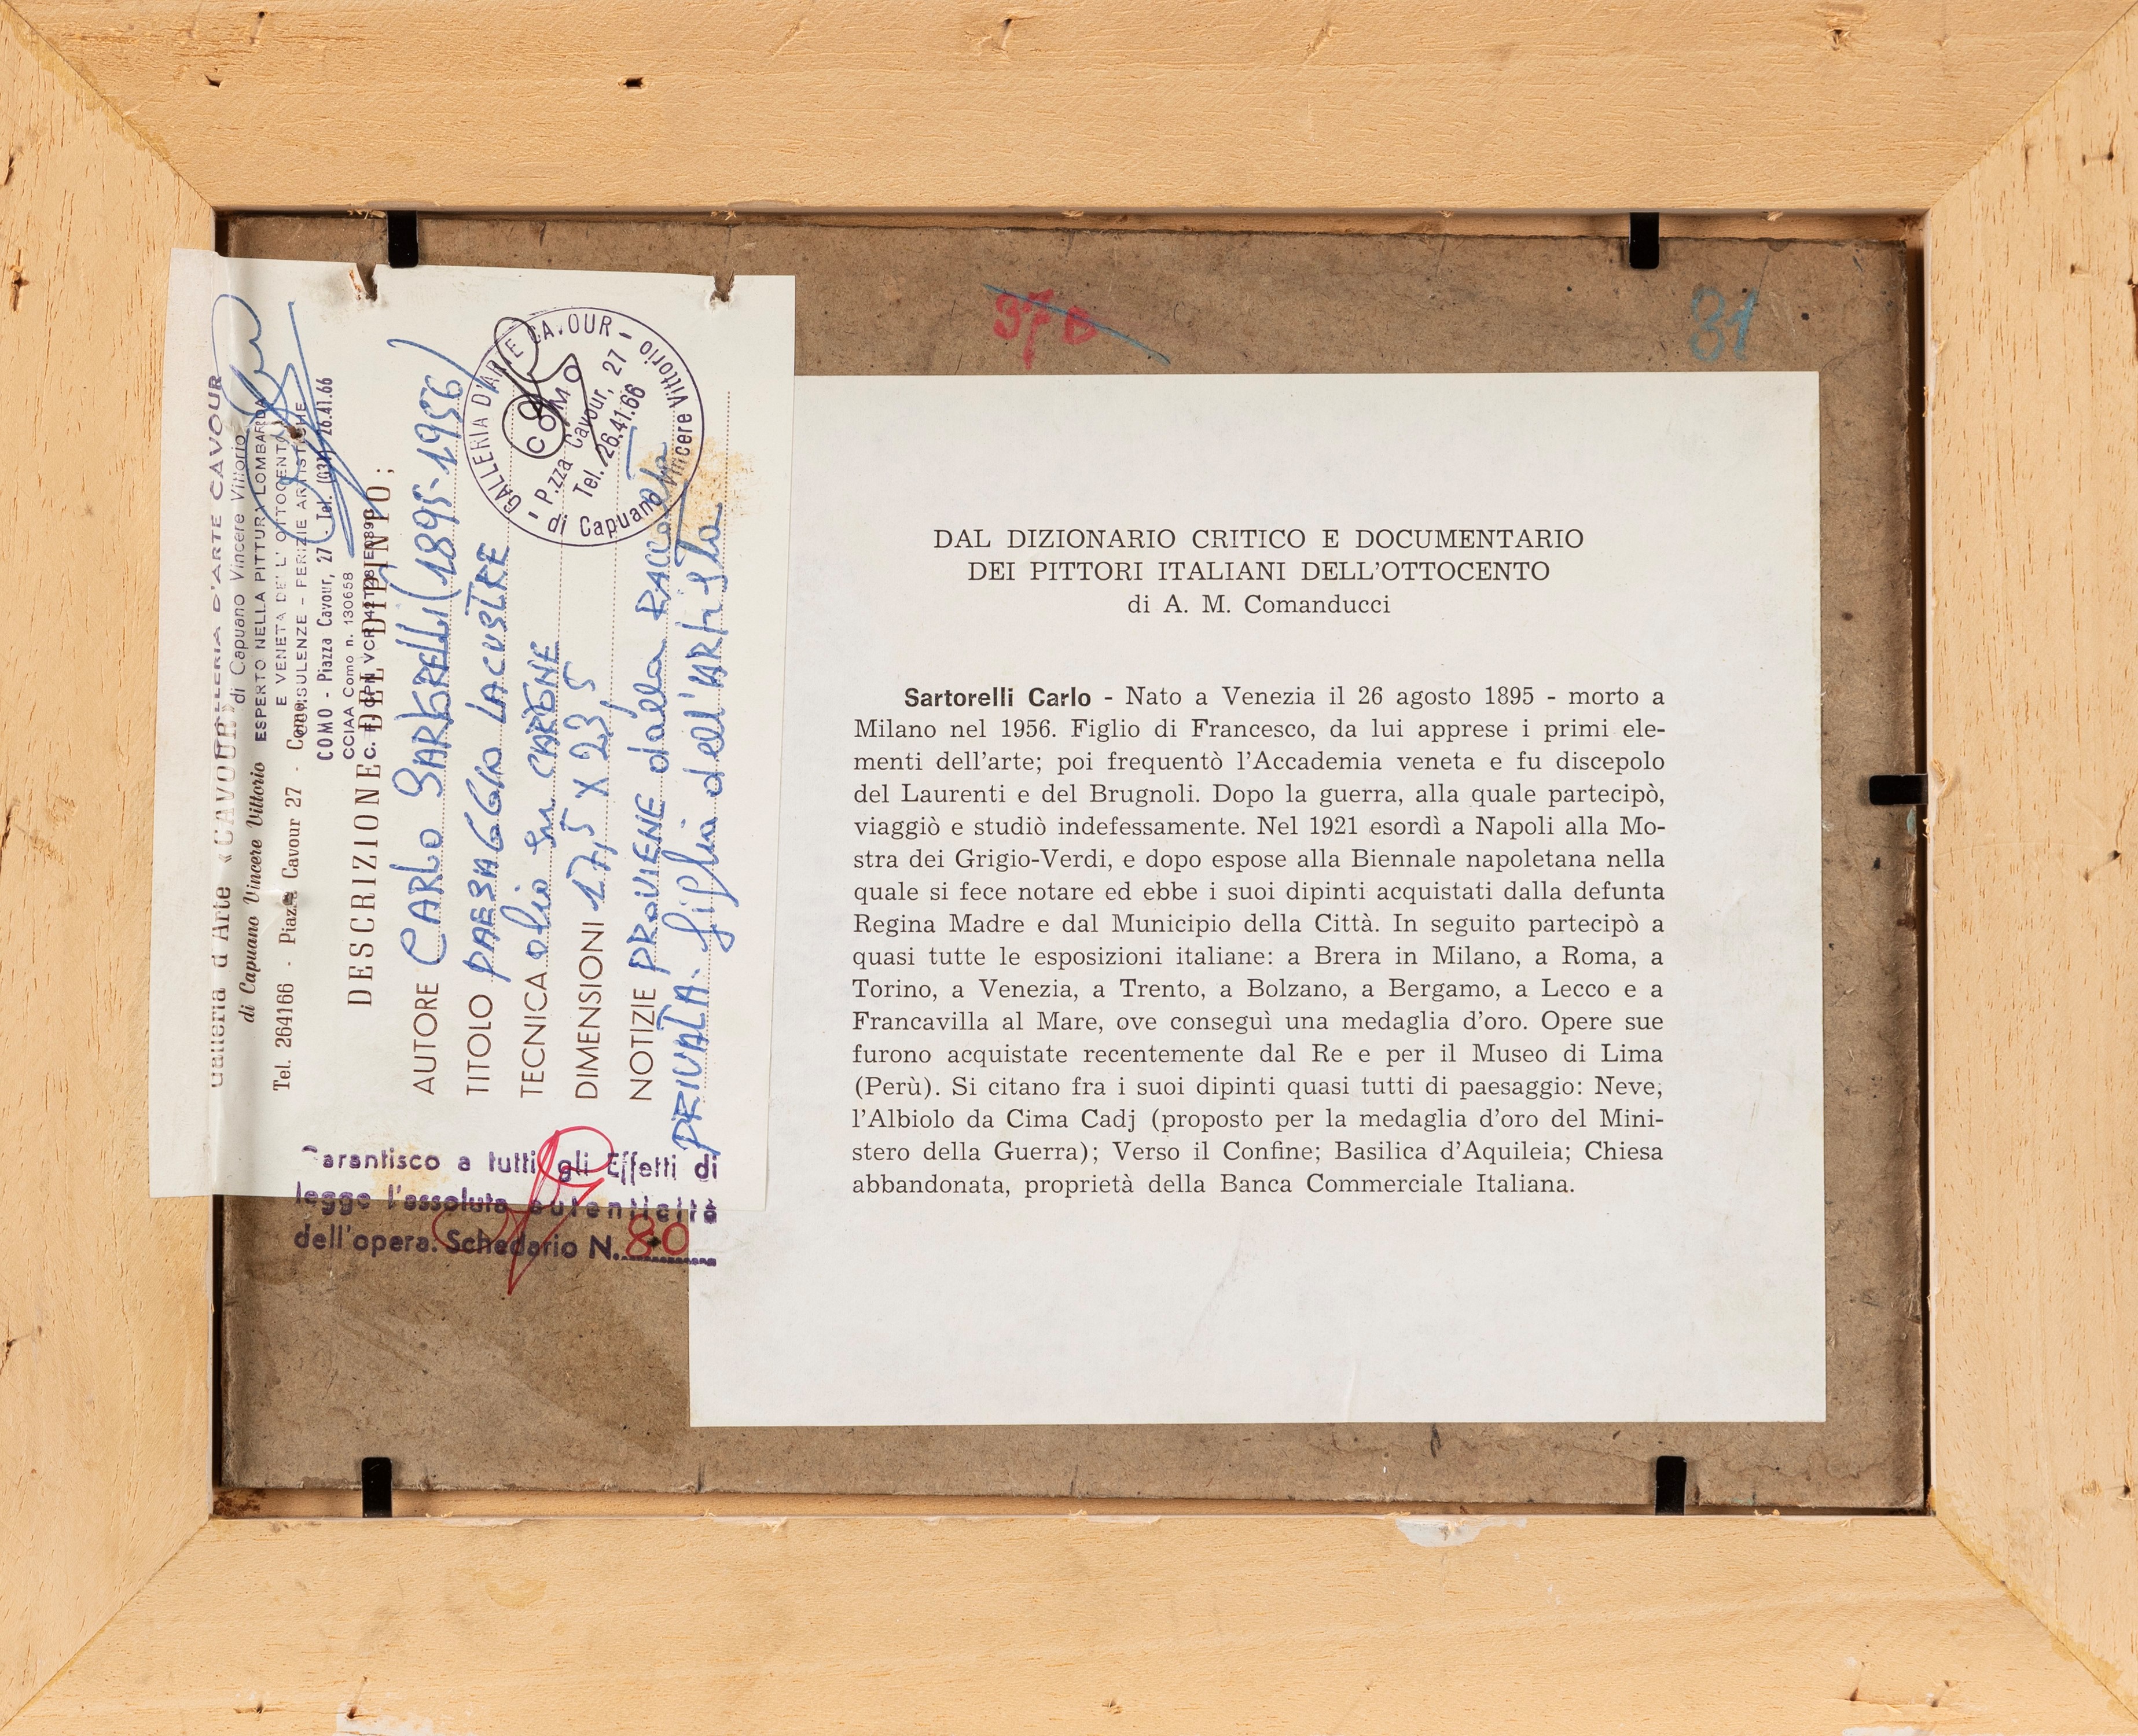 Galleria d'Arte «CAVOUR»
di Capuano Vincere Vittorio
Tel. 264166 - Piazza Cavour 27 - Como
GALLERIA D'ARTE CAVOUR
di Capuano Vincere Vittorio
ESPERTO NELLA PITTURA LOMBARDA
E VENETA DELL'OTTOCENTO
CONSULENZE - PERIZIE ARTISTICHE
COMO - Piazza Cavour, 27 - Tel. (031) 26.41.66
CCIAA Como n. 130658
DESCRIZIONE DEL DIPINTO;
AUTORE CARLO SARTORELLI (1895-1956)
TITOLO PAESAGGIO LACUSTRE
TECNICA olio su CARTONE
DIMENSIONI 17,5 X 23,5
NOTIZIE PROVIENE dalla RACCOLTA
PRIVATA. figlia dell'ARTISTA
GALLERIA D'ARTE CAVOUR -
COMO
- P.zza Cavour, 27 -
Tel. 26.41.66
di Capuano Vincere Vittorio
Garantisco a tutti gli Effetti di
legge l'assoluta autenticità
dell'opera. Schedario N. 80
37
31
DAL DIZIONARIO CRITICO E DOCUMENTARIO
DEI PITTORI ITALIANI DELL'OTTOCENTO
di A. M. Comanducci
Sartorelli Carlo - Nato a Venezia il 26 agosto 1895 - morto a
Milano nel 1956. Figlio di Francesco, da lui apprese i primi ele-
menti dell'arte; poi frequentò l'Accademia veneta e fu discepolo
del Laurenti e del Brugnoli. Dopo la guerra, alla quale partecipò,
viaggiò e studiò indefessamente. Nel 1921 esordì a Napoli alla Mo-
stra dei Grigio-Verdi, e dopo espose alla Biennale napoletana nella
quale si fece notare ed ebbe i suoi dipinti acquistati dalla defunta
Regina Madre e dal Municipio della Città. In seguito partecipò a
quasi tutte le esposizioni italiane: a Brera in Milano, a Roma, a
Torino, a Venezia, a Trento, a Bolzano, a Bergamo, a Lecco e a
Francavilla al Mare, ove conseguì una medaglia d'oro. Opere sue
furono acquistate recentemente dal Re e per il Museo di Lima
(Perù). Si citano fra i suoi dipinti quasi tutti di paesaggio: Neve,
l'Albiolo da Cima Cadj (proposto per la medaglia d'oro del Mini-
stero della Guerra); Verso il Confine; Basilica d'Aquileia; Chiesa
abbandonata, proprietà della Banca Commerciale Italiana.